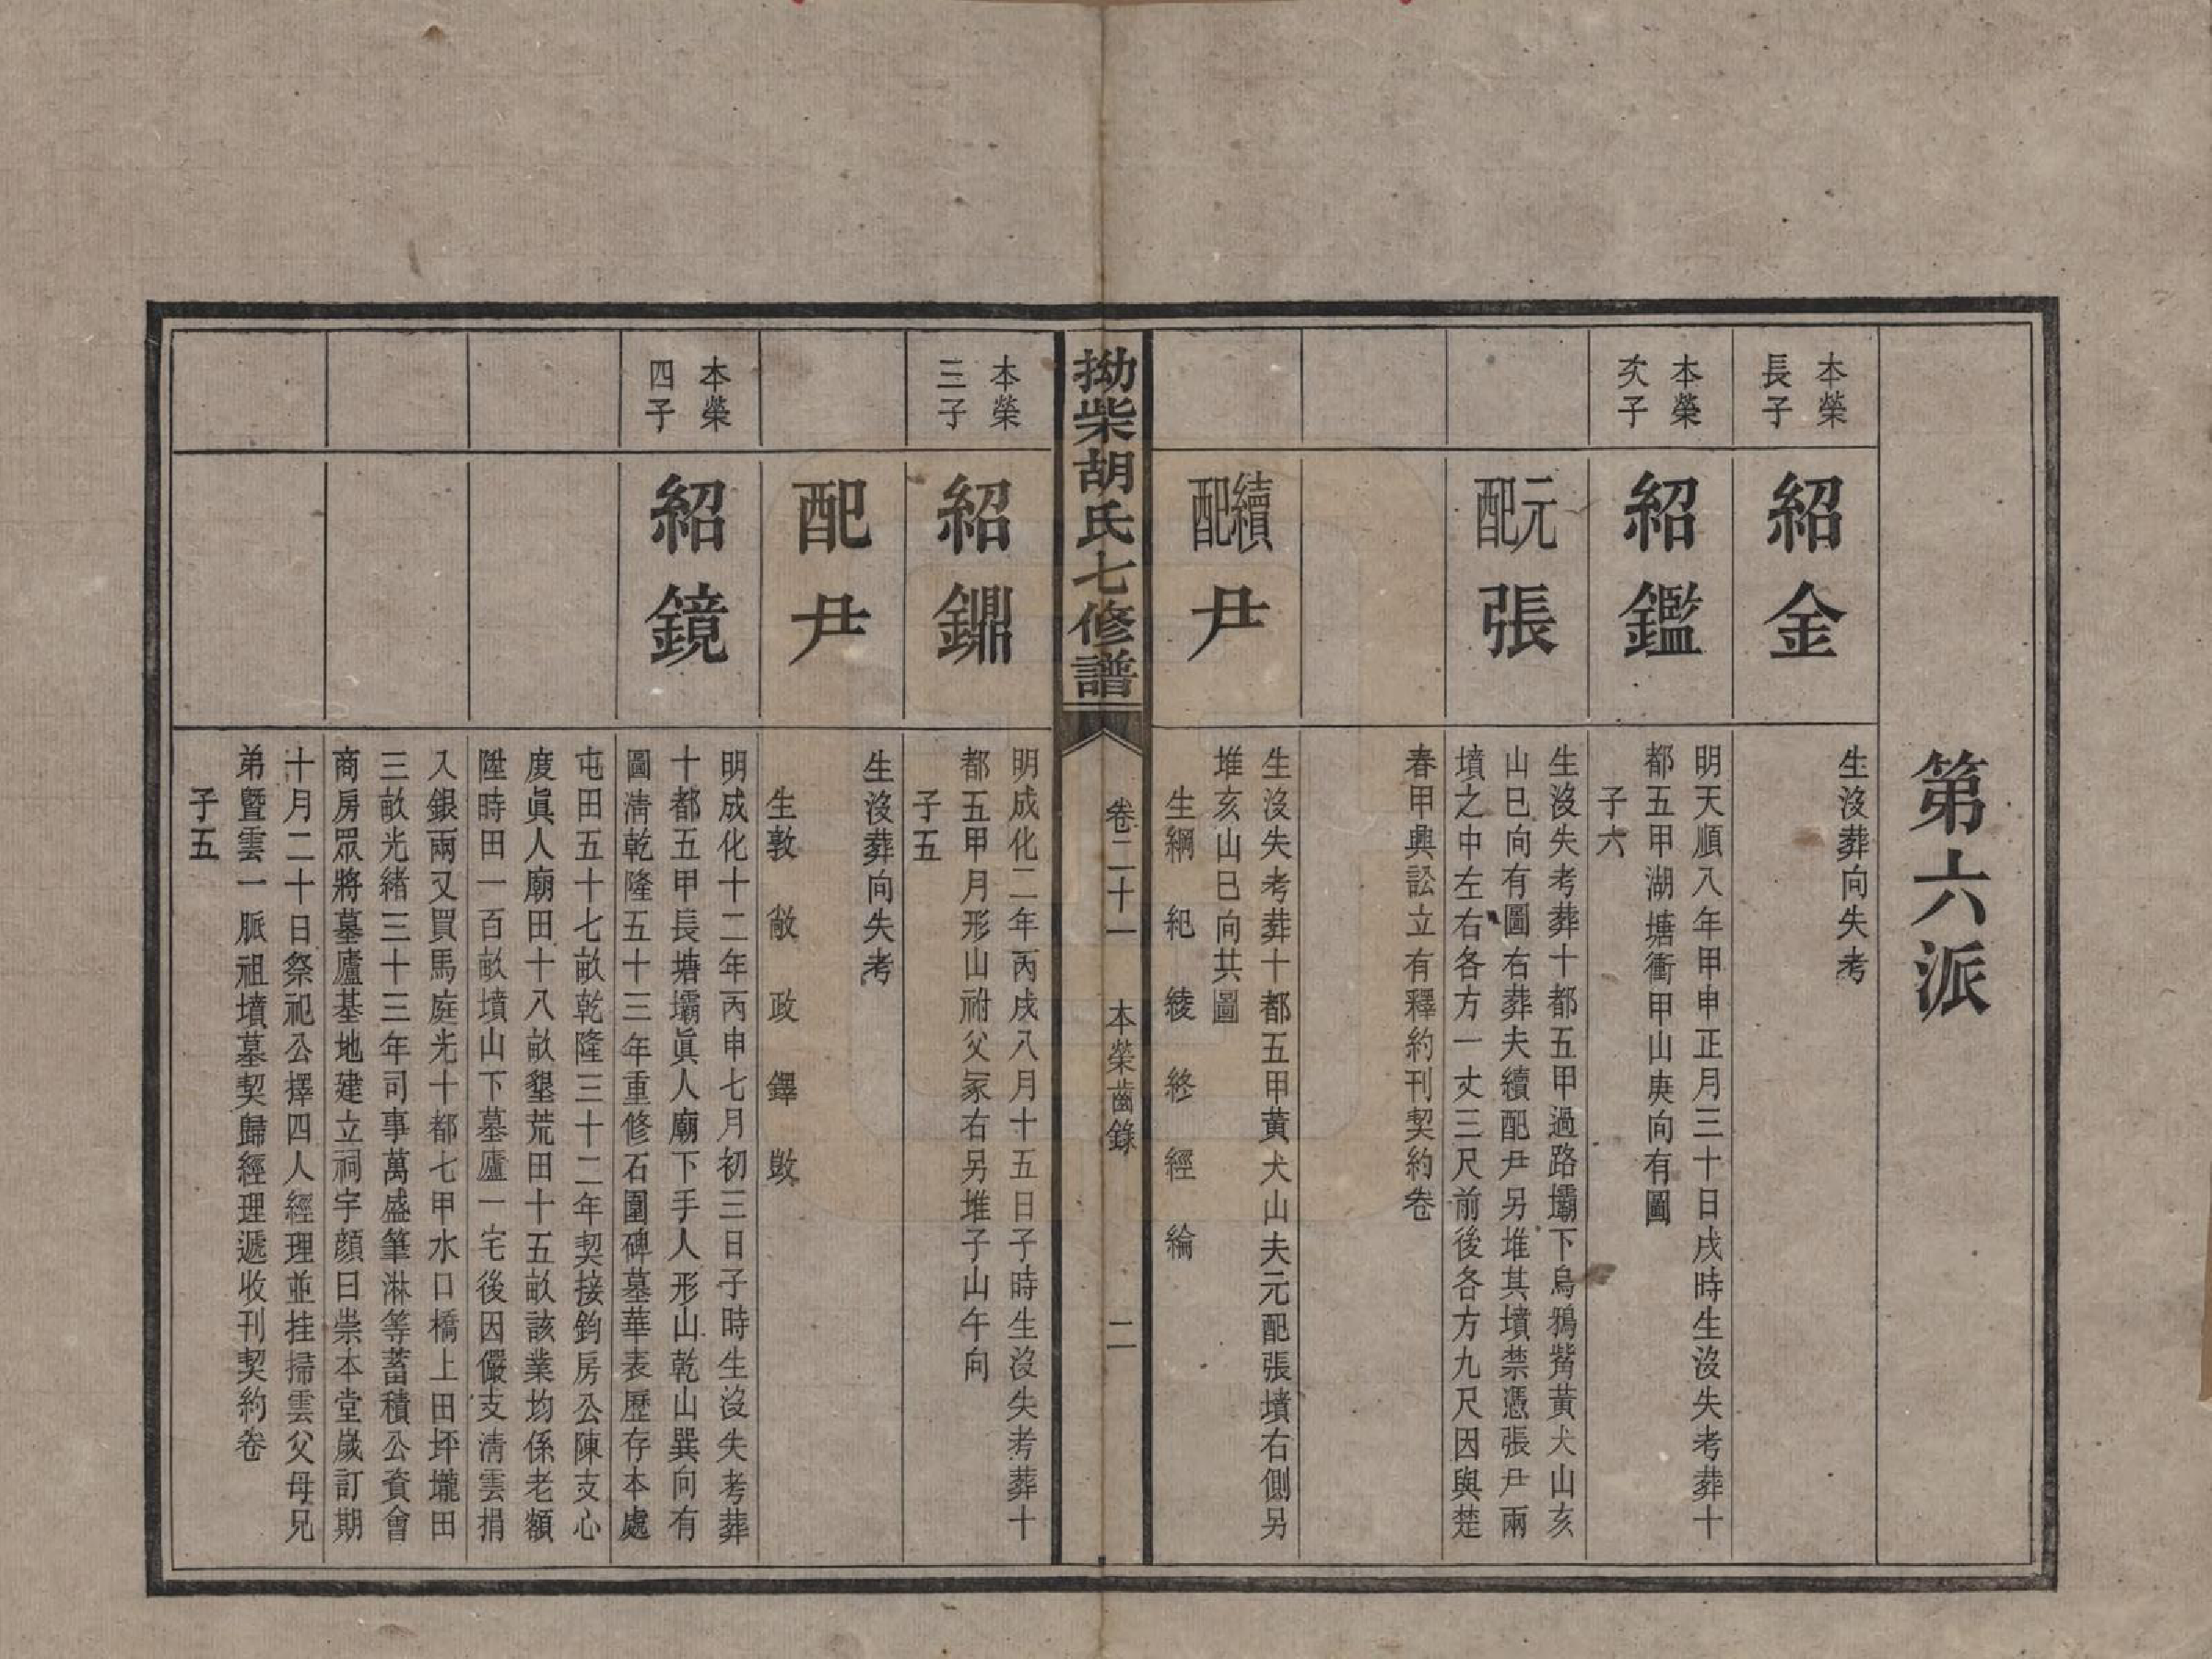 第六派
本榮
長子
紹金
生沒葬向失考
本榮
次子
紹鑑
明天順八年甲申正月三十日戌時生沒失考葬十
都五甲湖塘衝甲山庚向有圖
子六
元配張
生沒失考葬十都五甲過路壩下烏鴉觜黃犬山亥
山巳向有圖右葬夫續配尹另堆其墳禁憑張尹兩
墳之中左右各方一丈三尺前後各方九尺因與楚
春甲興訟立有釋約刊契約卷
續配尹
生沒失考葬十都五甲黃犬山夫元配張墳右側另
堆亥山巳向共圖
生綱 紀 綾 終 經 綸
拗柴胡氏七修譜
卷二十一
本榮齒錄
二
本榮
三子
紹鐤
明成化二年丙戌八月十五日子時生沒失考葬十
都五甲月形山祔父冢右另堆子山午向
子五
配尹
生沒葬向失考
生敦 敞 政 鐸 敳
本榮
四子
紹鏡
明成化十二年丙申七月初三日子時生沒失考葬
十都五甲長塘壩眞人廟下手人形山乾山巽向有
圖淸乾隆五十三年重修石圍碑墓華表歷存本處
屯田五十七畝乾隆三十二年契接鈞房公陳支心
度眞人廟田十八畝墾荒田十五畝該業均係老額
陞時田一百畝墳山下墓廬一宅後因儼支淸雲捐
入銀兩又買馬庭光十都七甲水口橋上田坪壠田
三畝光緒三十三年司事萬盛筆淋等蓄積公資會
商房眾將墓廬基地建立祠宇顏曰崇本堂歲訂期
十月二十日祭祀公擇四人經理並挂掃雲父母兄
弟暨雲一脈祖墳墓契歸經理遞收刊契約卷
子五